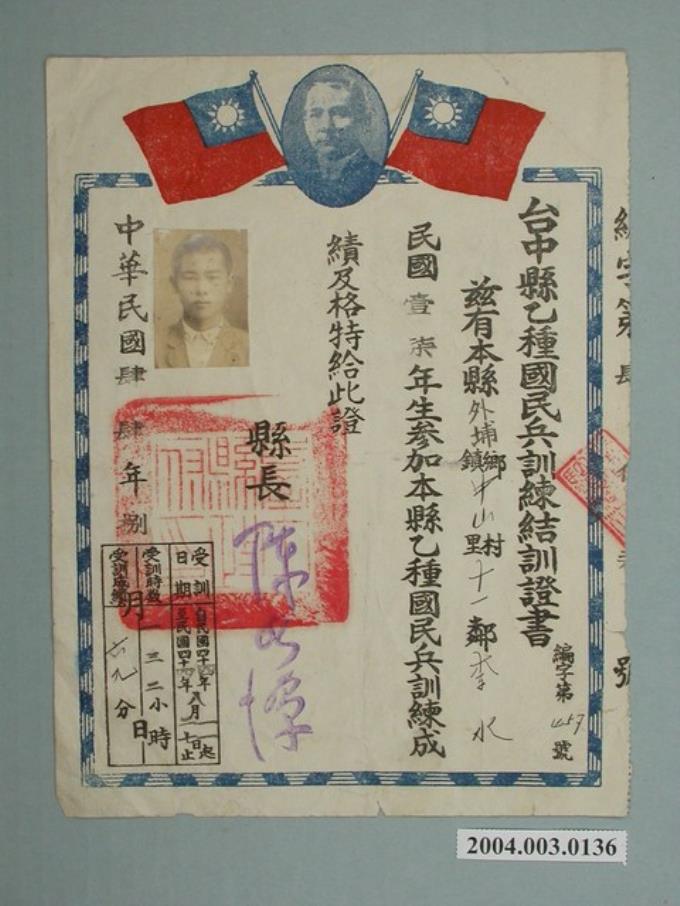 台中縣乙種國民兵訓練結訓證書
編字第457號
茲有本縣外埔鄉鎮中山村里十一鄰李水
民國壹柒年生參加本縣乙種國民兵訓練成
績及格特給此證
縣長
中華民國肆肆年捌月日
受訓日期 自民國四十四年八月一日起 至民國四十四年八月十七日止
受訓時數 一三二小時
受訓成績 六九分
字第 號
2004.003.0136